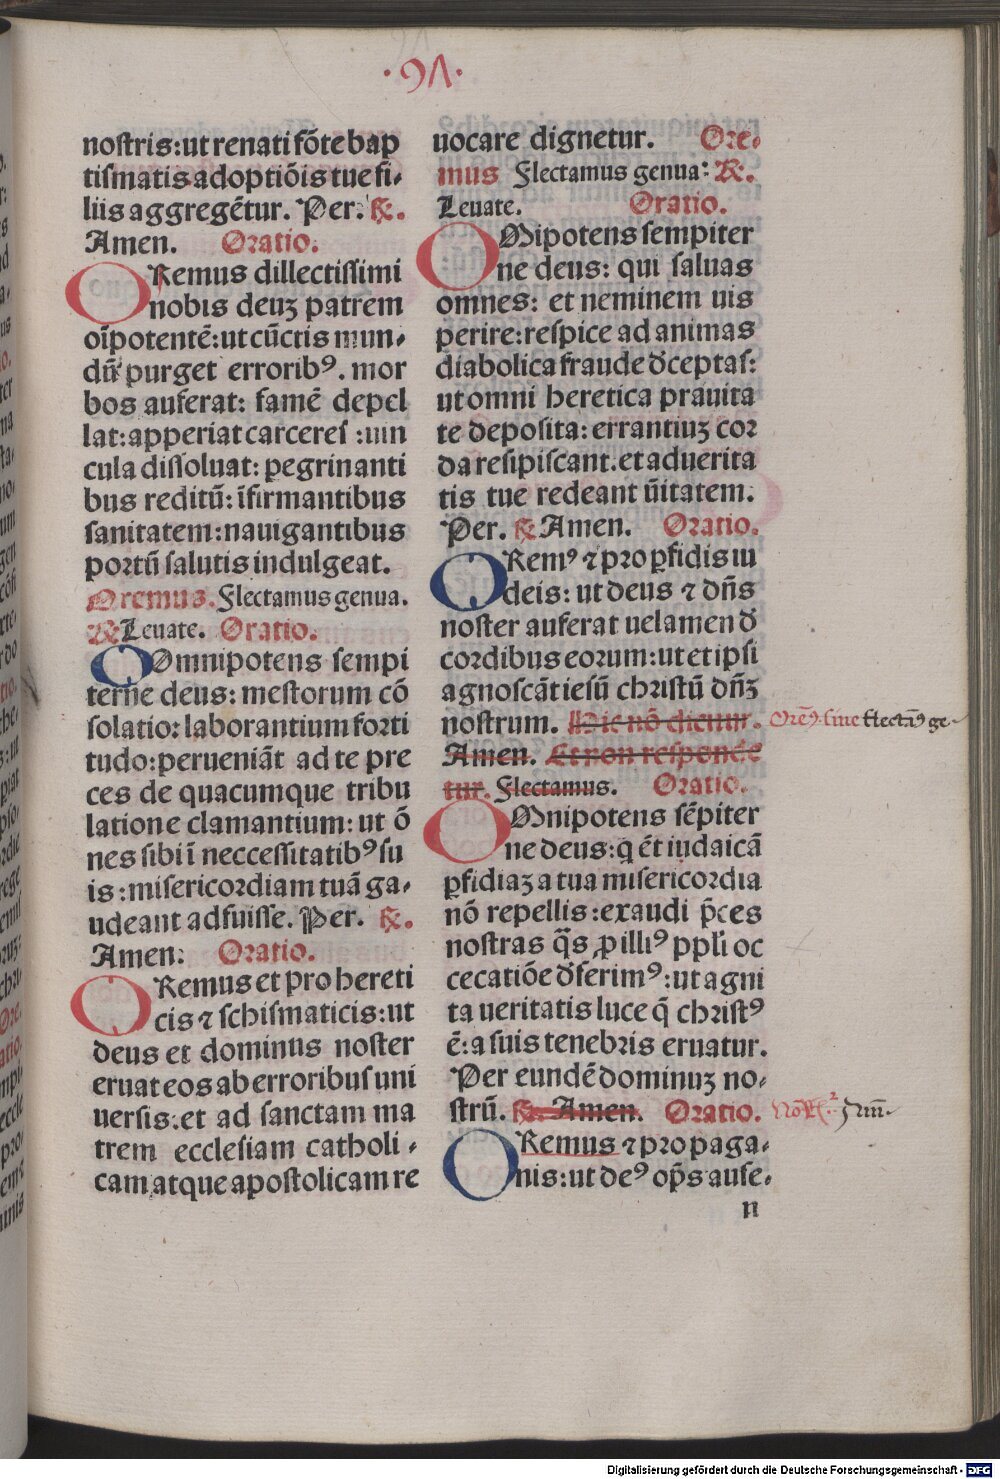 ·9Λ·
nostris:ut renati fōte bap
tismatis adoptiōis tue fi-
liis aggregētur. Per. ℟.
Amen. Oratio.
ORemus dillectissimi
nobis deuȝ patrem
oīpotentē:ut cūctis mun-
dū purget erroribꝰ. mor
bos auferat: famē depel
lat:apperiat carceres :uin
cula dissoluat: pegrinanti
bus reditū: īfirmantibus
sanitatem:nauigantibus
portū salutis indulgeat.
Oremus. Flectamus genua.
℟ Leuate. Oratio.
OOmnipotens sempi
terne deus: mestorum cō
solatio: laborantium forti
tudo: perueniāt ad te pre
ces de quacumque tribu
latione clamantium: ut ō
nes sibi ī neccessitatibꝰ su
is: misericordiam tuā ga-
udeant adfuisse. Per. ℟.
Amen: Oratio.
ORemus et pro hereti
cis ⁊ schismaticis: ut
deus et dominus noster
eruat eos ab erroribus uni
uersis:et ad sanctam ma
trem ecclesiam catholi-
cam atque apostolicam re
uocare dignetur. Ore-
mus Flectamus genua: ℟.
Leuate. Oratio.
OMipotens sempiter
ne deus: qui saluas
omnes: et neminem uis
perire: respice ad animas
diabolica fraude đceptas:
ut omni heretica prauita
te deposita: errantiuȝ cor
da resipiscant. et ad uerita
tis tue redeant ūitatem.
Per. ℟ Amen. Oratio.
ORemꝰ ⁊ pro ꝑfidis iu
deis: ut deus ⁊ dn̄s
noster auferat uelamen đ
cordibus eorum: ut et ipsi
agnoscāt iesū christū dn̄ȝ
nostrum. Hic nō dicitur.
Orēꝰ. siue flectāꝰ ge-
Amen. Et non responde
tur. Flectamus. Oratio.
OMnipotens sēpiter
ne deus: q ēt iudaicā
ꝑfidiaȝ a tua misericordia
nō repellis: exaudi p̄ces
nostras q̄s ꝓ illiꝰ ppli oc
cecatiōe đferimꝰ: ut agni
ta ueritatis luce q̄ christꝰ
ē: a suis tenebris eruatur.
Per eundē dominuȝ no-
strū. ℟. Amen. Oratio.
ORemus ⁊ pro paga-
nis: ut deꝰ op̄s aufe-
n
Digitalisierung gefördert durch die Deutsche Forschungsgemeinschaft - DFG